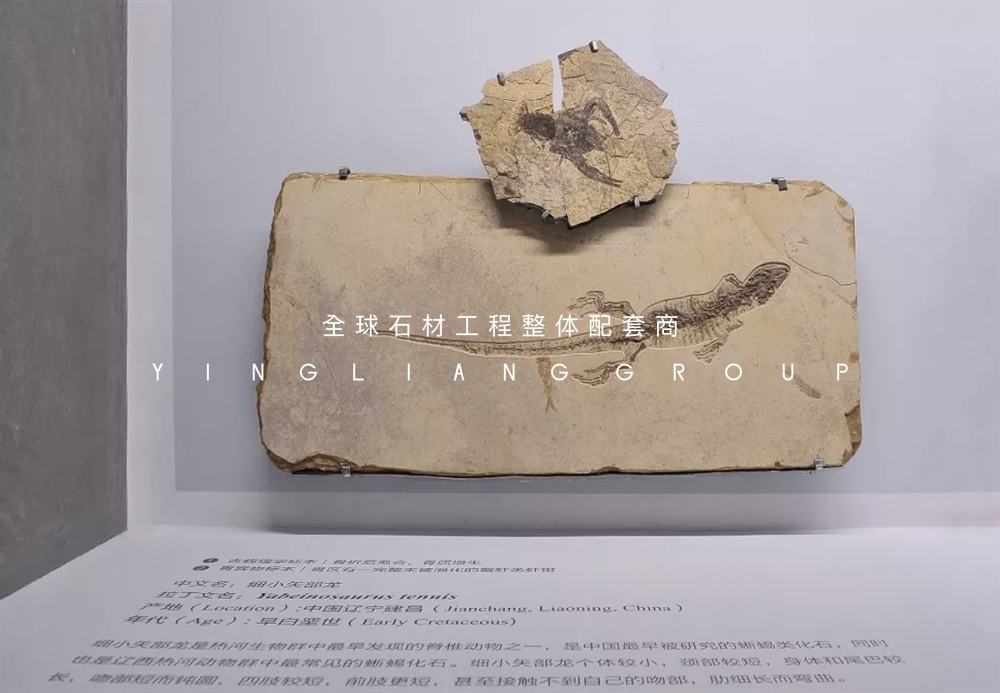 全球石材工程整体配套商
YINGLIANG GROUP
① 古病理学标本 / 骨折后愈合，骨质增生
② 胃容物标本 / 胃区有一完整未被消化的螯虾类虾钳
中文名：细小矢部龙
拉丁文名：Yabeinosaurus tenuis
产地（Location）:中国辽宁建昌（Jianchang, Liaoning, China）
年代（Age）: 早白垩世（Early Cretaceous）
细小矢部龙是热河生物群中最早发现的脊椎动物之一，是中国最早被研究的蜥蜴类化石，同时
也是辽西热河动物群中最常见的蜥蜴化石。细小矢部龙个体较小，颈部较短，身体和尾巴较
长，吻部短而钝圆，四肢较短，前肢更短，甚至接触不到自己的吻部，肋细长而弯曲。